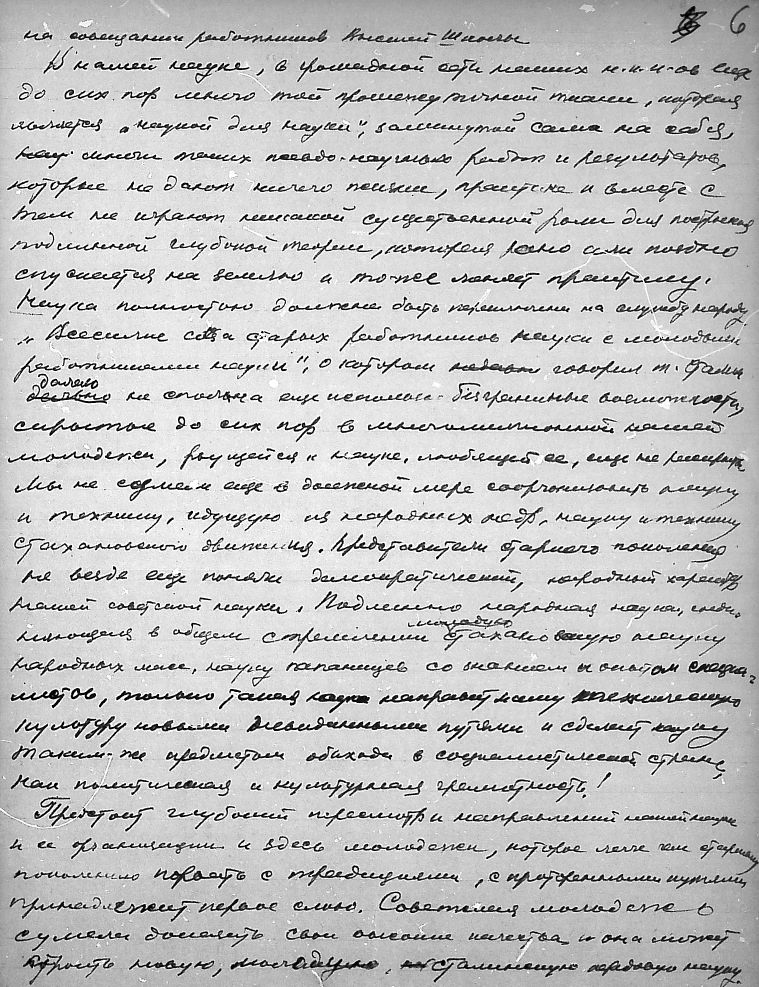 6
на совещании работников Высшей Школы
В нашей науке, в громадной сети наших н.-и.-и-ов еще
до сих пор много той промежуточной ткани, которая
является „наукой для науки", замкнутой сама на себя,
много таких псевдо-научных работ и результатов,
которые не дают ничего жизни, практике и вместе с
тем не играют никакой существенной роли для построения
подлинной глубокой теории, которая рано или поздно
спускается на землю и тоже меняет практику.
Наука полностью должна быть переключена на службу народу
„Всесилие союза старых работников науки с молодыми
работниками науки", о котором недавно говорил т. Сталин
далеко
не сполна еще использ. безграничные возможности,
скрытые до сих пор в многомиллионной нашей
молодежи, рвущейся к науке, любящей ее, еще не раскрыты
Мы не сумели еще в должной мере соорганизовать науку
и технику, идущую из народных недр, науку и технику
стахановского движения. Представители старшего поколения
не везде еще поняли демократический, народный характер
нашей советской науки. Подлинно народная наука,
в общем стремлении стахановскую науку
народных масс, науку папанинцев со знанием и опытом специа-
листов, только такая наука направит нашу техническую
культуру новыми невиданными путями и сделает науку
таким-же предметом обихода в социалистической стране,
как политическая и культурная грамотность!
Предстоит глубокий пересмотр и направлений нашей науки
и ее организации и здесь молодежи, которое легче чем старшему
поколению порвать с традициями, с проторенными путями
принадлежит первое слово. Советская молодежь
сумела доказать свои высокие качества и она может
строить новую, молодую, сталинскую передовую науку.